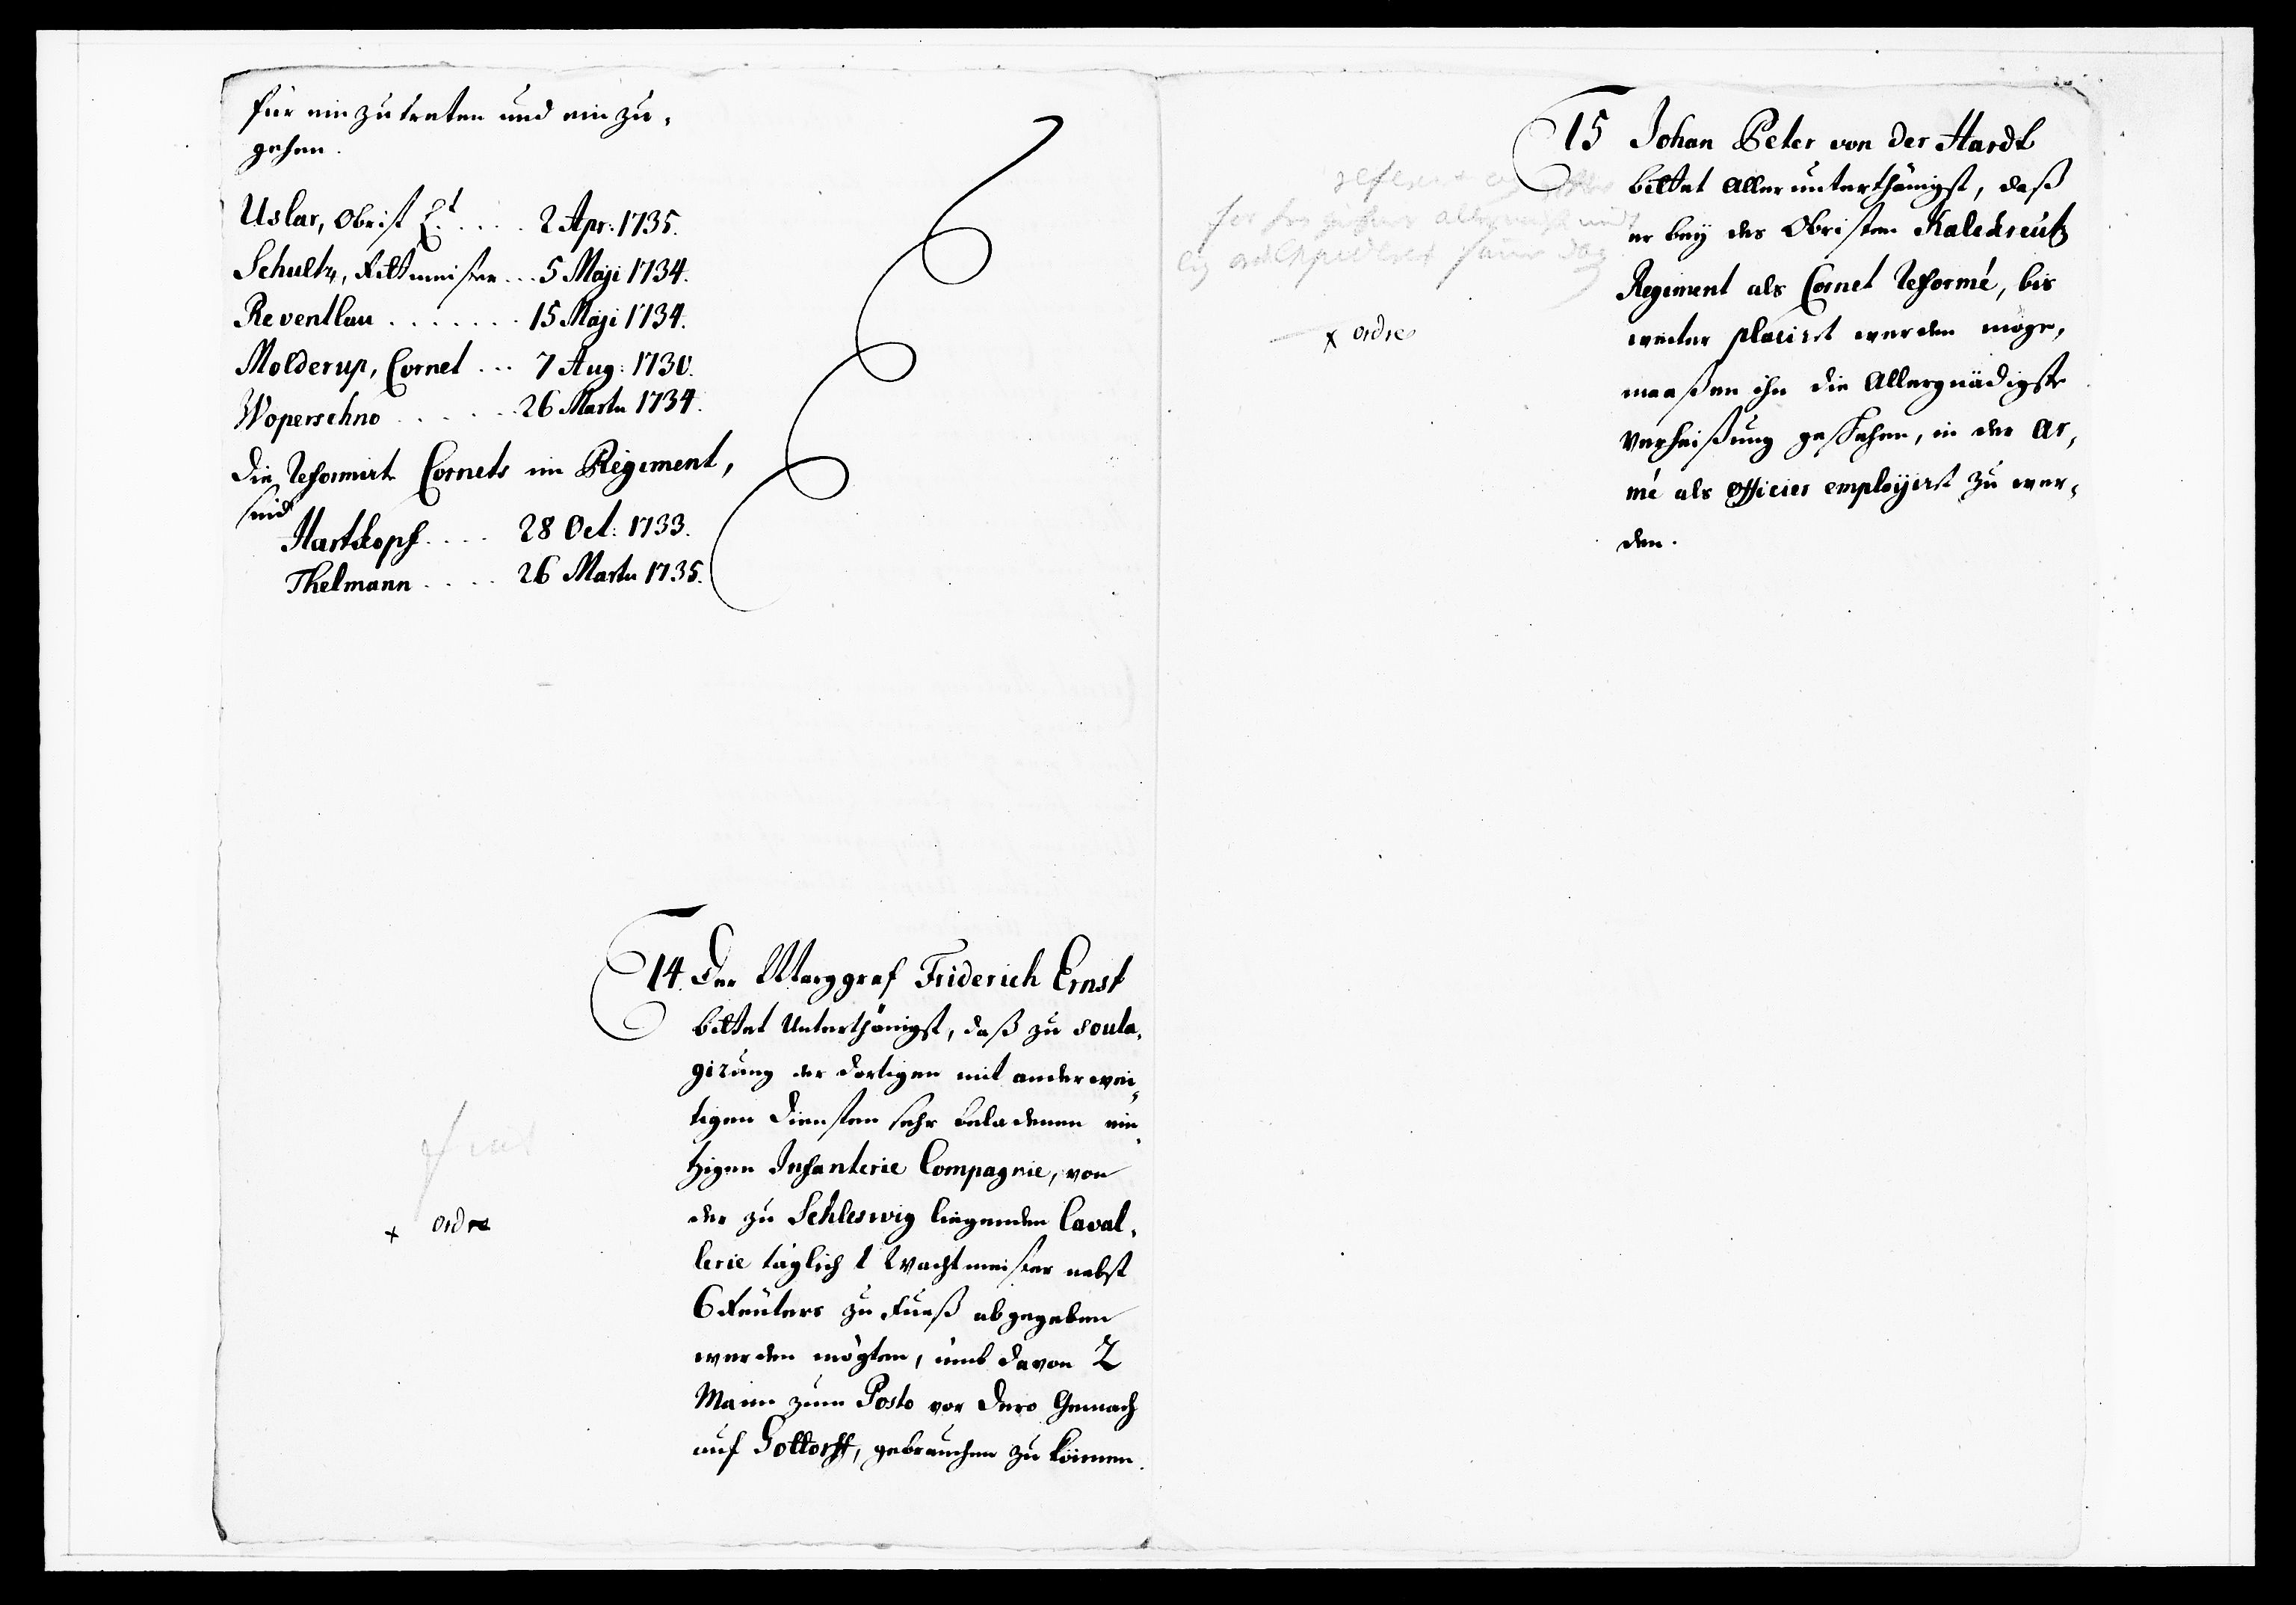 für einzutreten und einzu-
gehen.
Uslar, Obrist Lt. . . . . 2 Apr: 1735.
Schultz, Rittmeister . . . 5 Maji 1734.
Reventlau . . . . . . . 15 Maji 1734.
Molderup, Cornet . . . 7 Aug: 1730.
Woperschno . . . . . 26 Martii 1734.
Die Reformirte Cornets im Regiment,
sind
Hartkopf . . . . 28 Oct: 1733.
Thelmann . . . . 26 Martii 1735.
14. Der Marggraf Friderich Ernst
bittet Unterthänigst, daß zu soula-
girung der dortigen mit anderwei-
tigen Diensten sehr beladenen ein-
tzigen Infanterie Compagnie, von
der zu Schleswig liegenden Caval-
lerie täglich 1 Wachtmeister nebst
6 Reüters zu Fueß abgegeben
werden mögten, umb davon 2
Mann zum Posto vor Dero Gemach
auf Gottorff, gebrauchen zu können.
fiat
x ordre
15 Johan Peter von der Hardt
bittet allerunterthänigst, daß
er bey des Obristen Kalckreutz
Regiment als Cornet Reformé, bis
weiter placiret werden möge,
maaßen ihn die Allergnädigste
Verheißung geschehen, in der Ar-
mé als Officier employiret zu wer-
den.
referert
x ordre